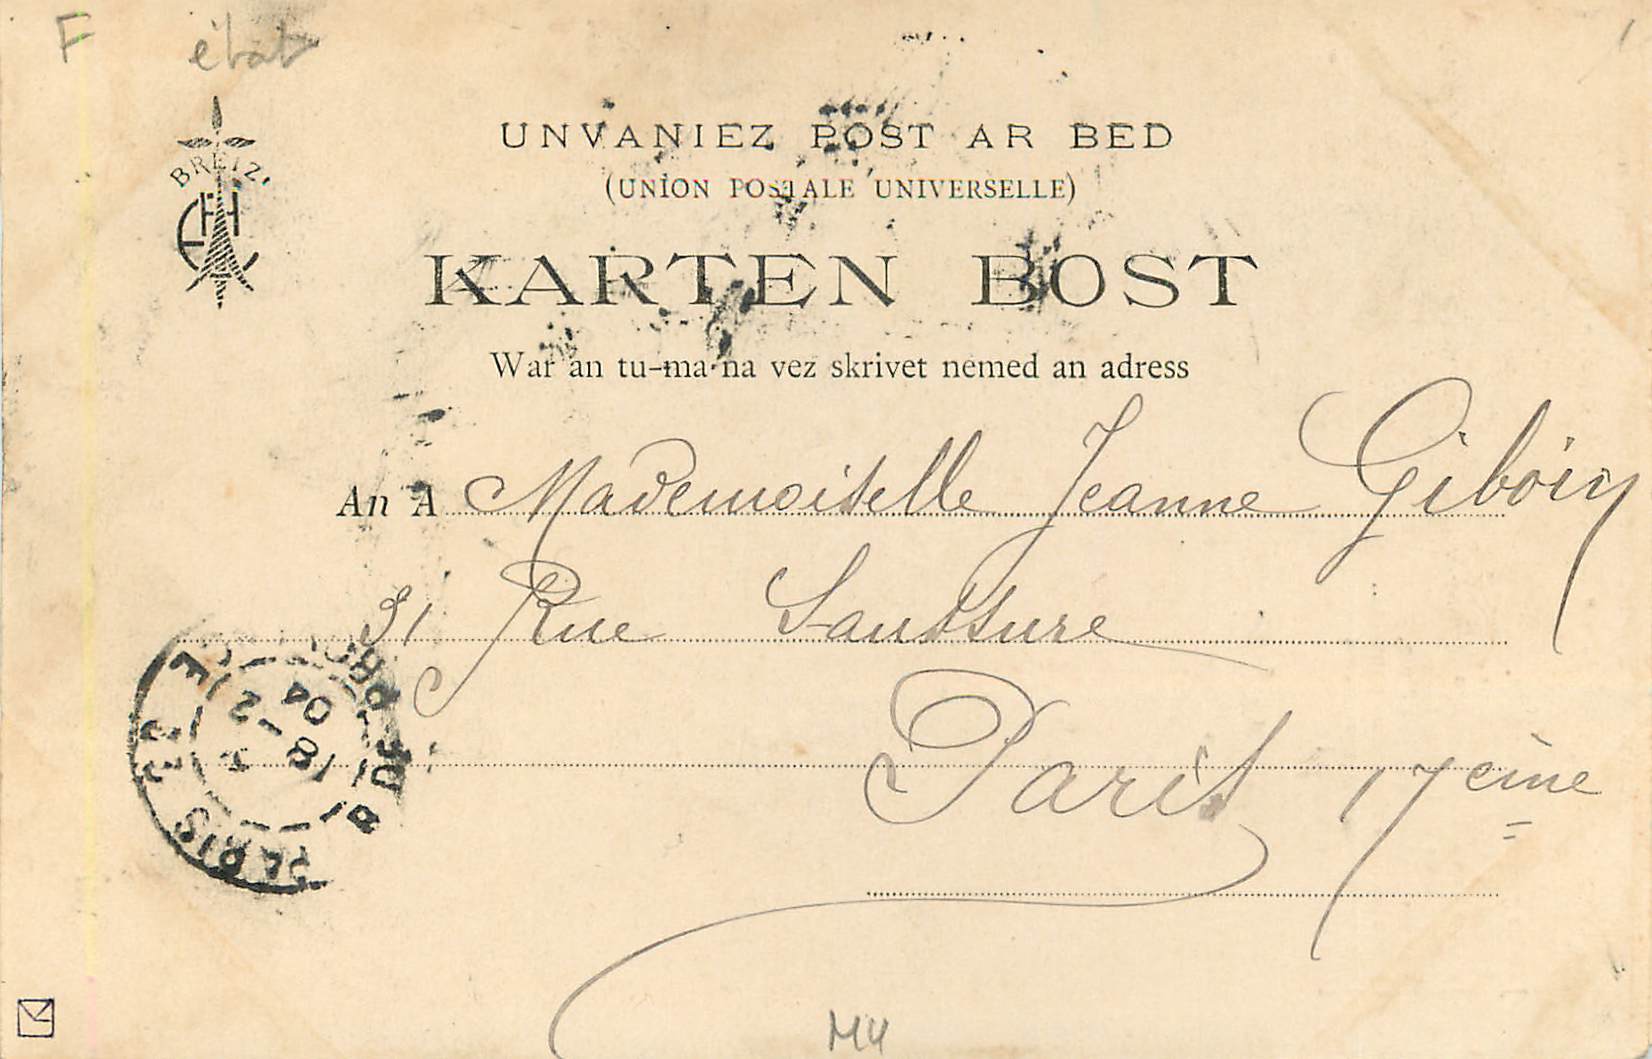 F état
BREIZ
UNVANIEZ POST AR BED
(UNION POSTALE UNIVERSELLE)
KARTEN BOST
War an tu-ma na vez skrivet nemed an adress
An A Mademoiselle Jeanne Giboin
51 Rue Saussure
Paris 17ème
PARIS
18 -2
04
M4